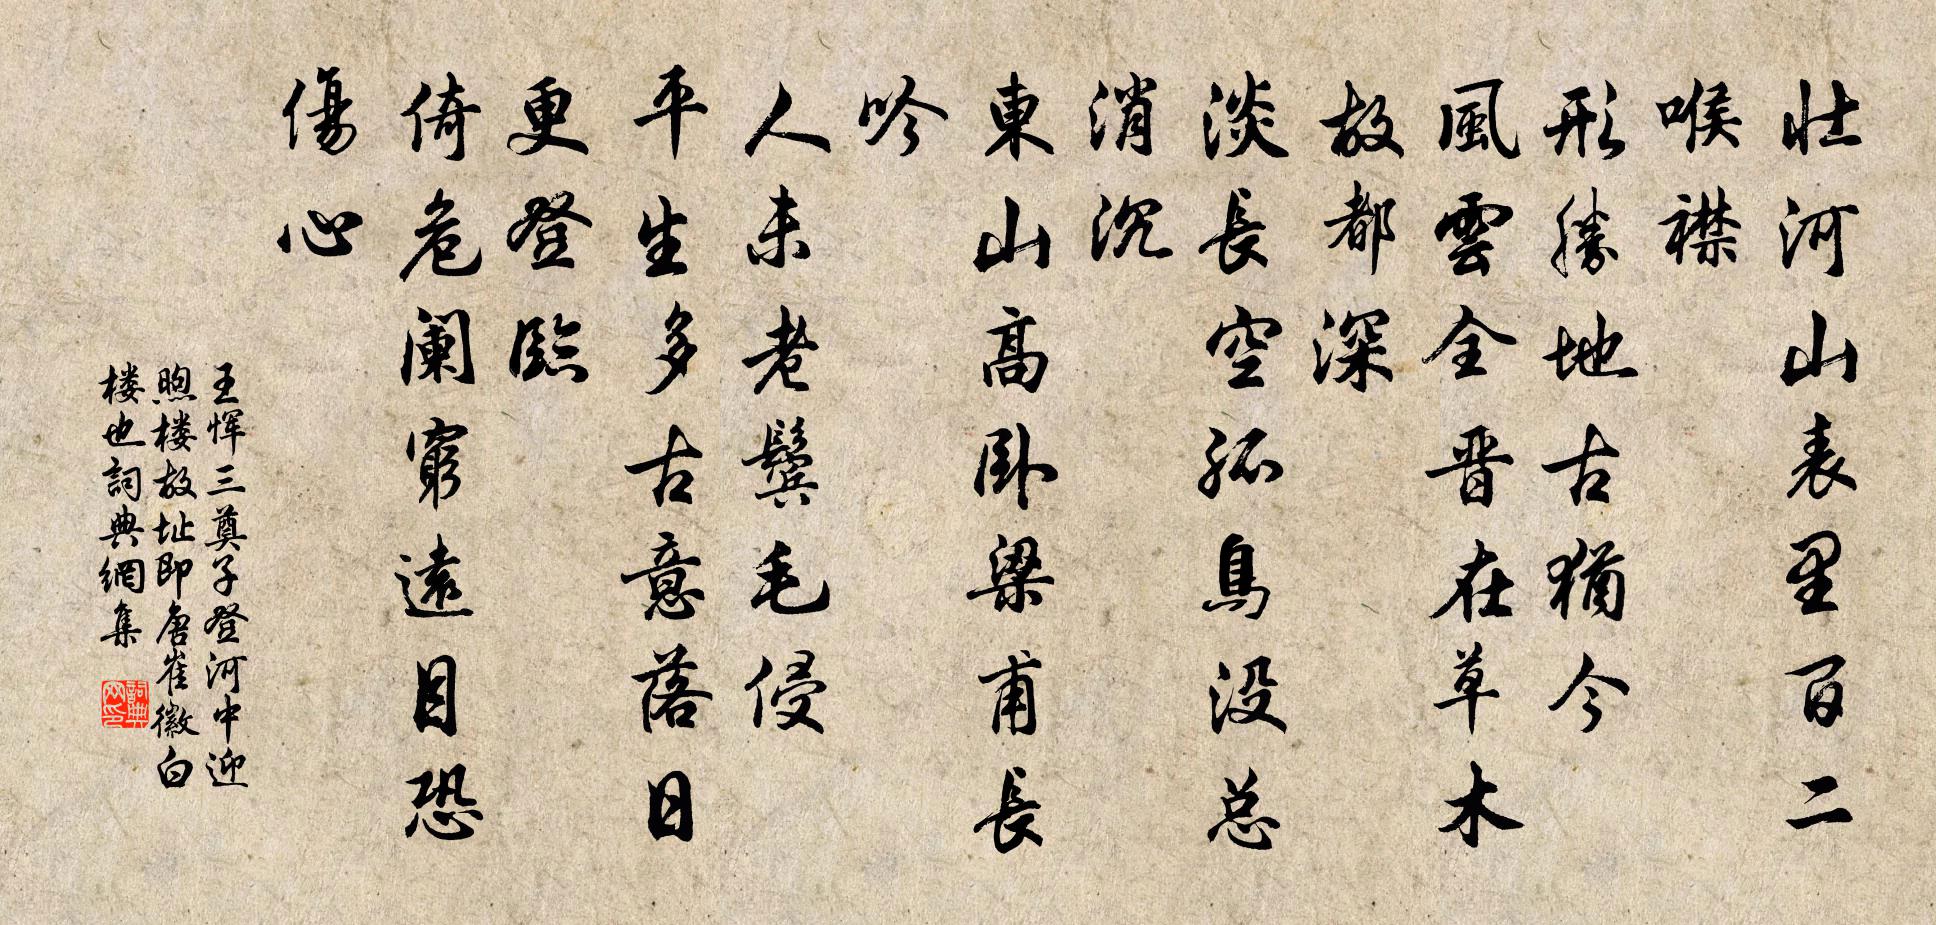 壮河山表里百二
喉襟
形勝地古猶今
風雲全晋在草木
故都深
淡長空孤鳥没总
消沉
東山高卧梁甫長
吟
人未老鬓毛侵
平生多古意落日
更登臨
倚危阑窮遠目恐
傷心
王恽三奠子登河中迎
煦楼故址即唐崔徽白
楼也詞典網集
詞典网印